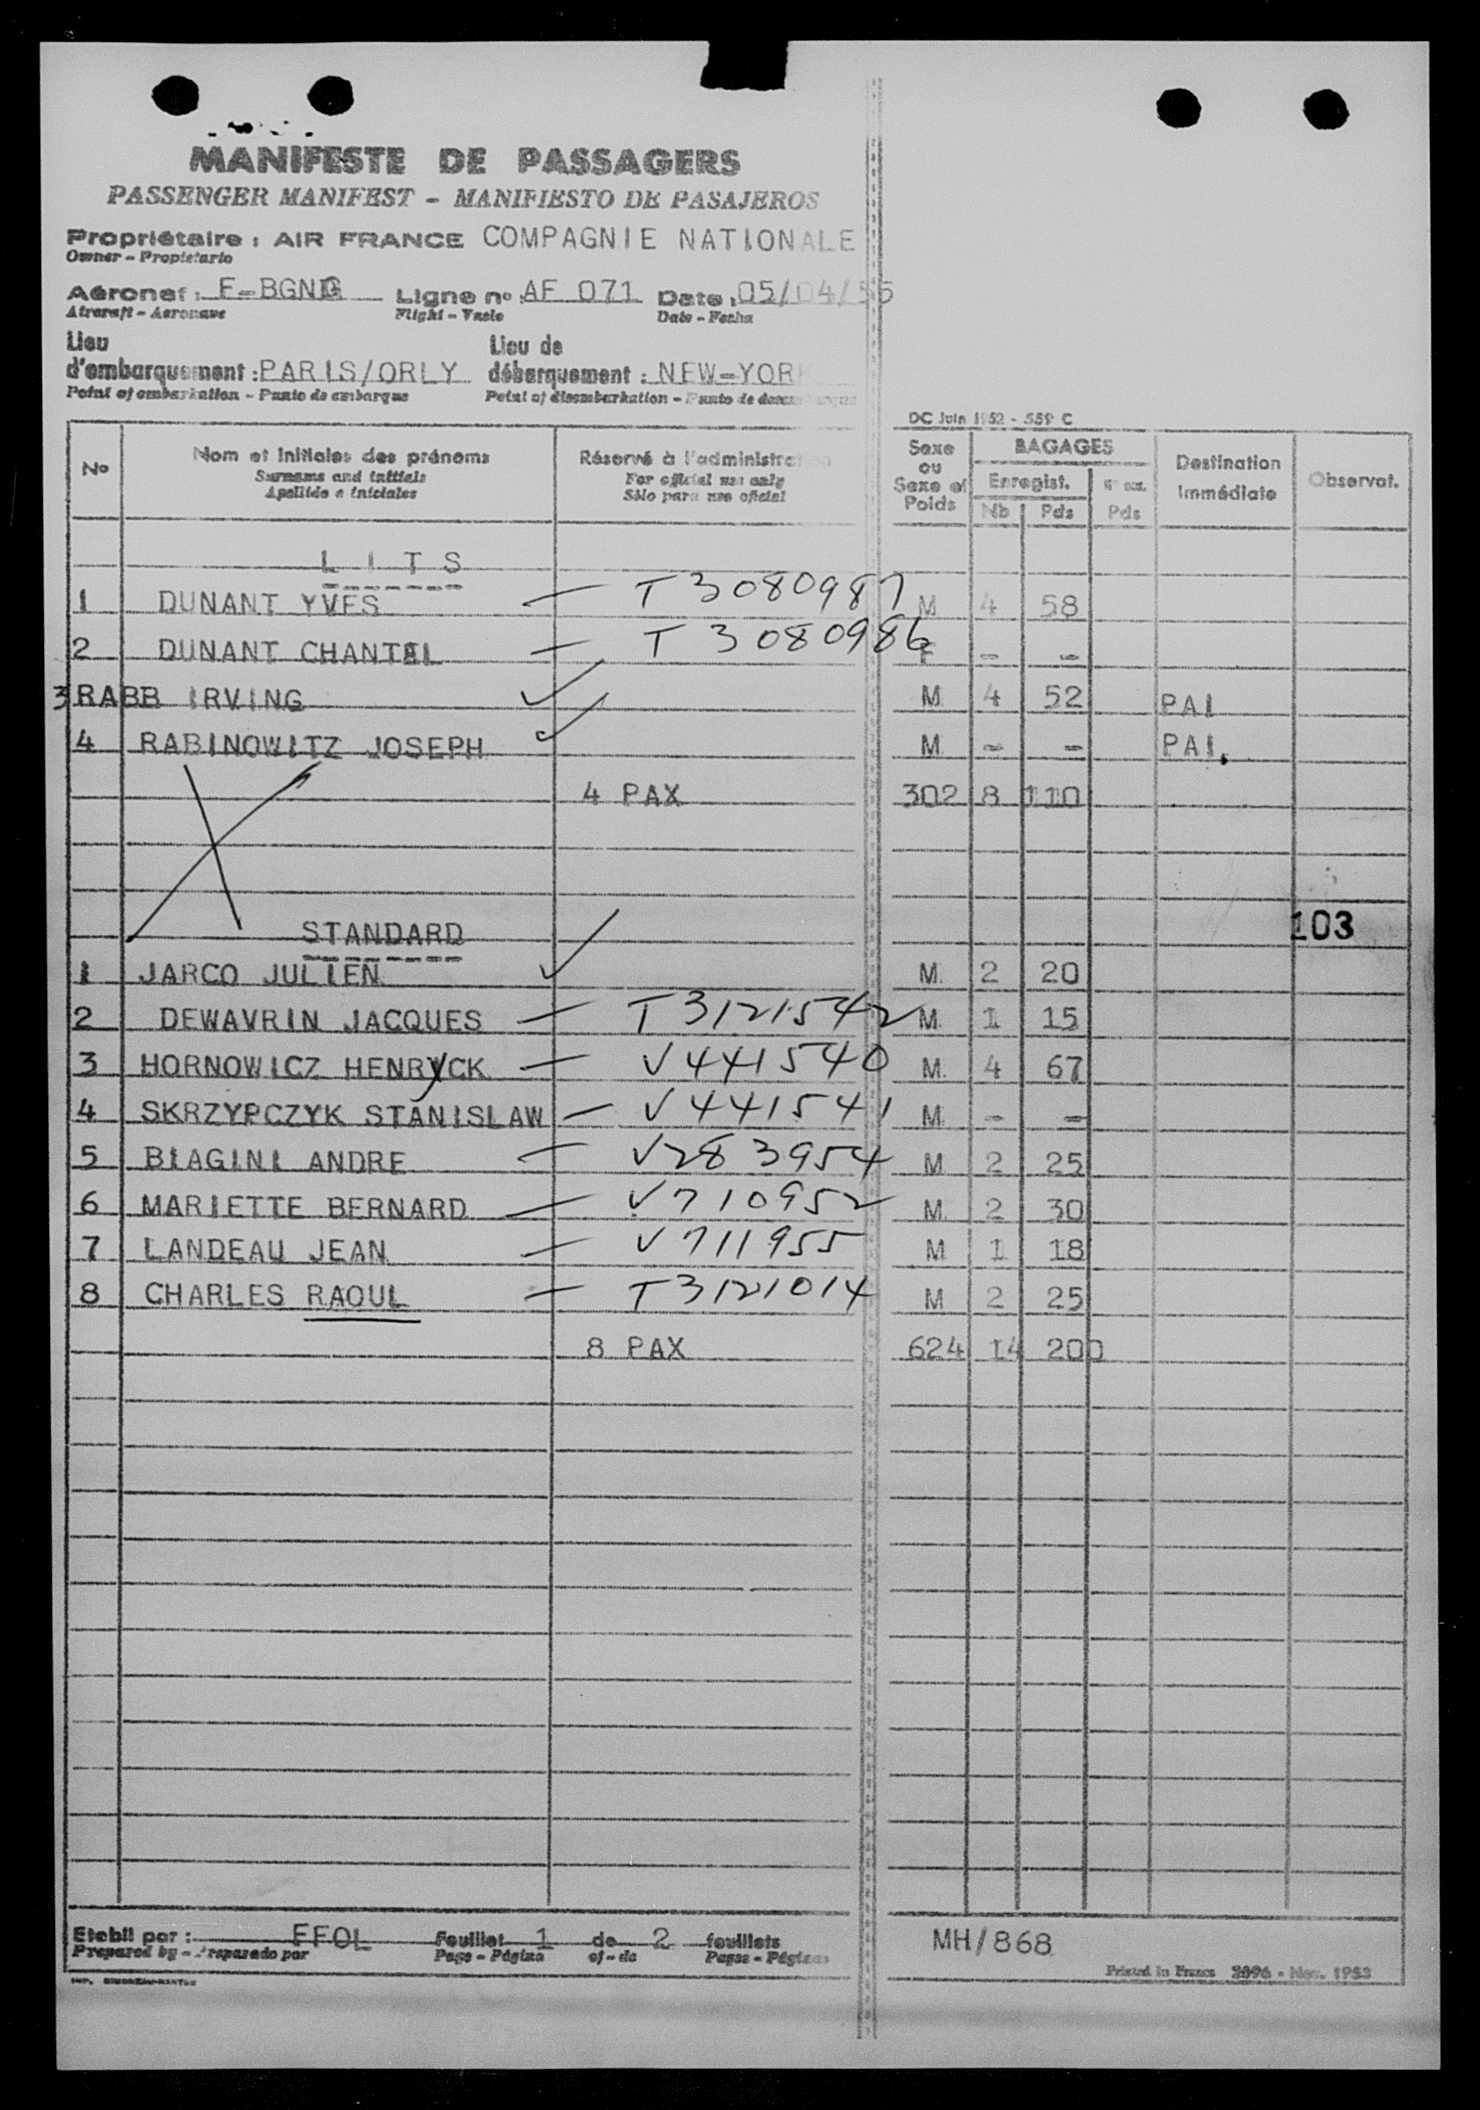 MANIFESTE DE PASSAGERS
PASSENGER MANIFEST - MANIFIESTO DE PASAJEROS
Propriétaire : AIR FRANCE COMPAGNIE NATIONALE
Owner - Propietario
Aéronef : F-BGNG Ligne no : AF 071 Date : 05/04/55
Aircraft - Aeronave Flight - Vuelo Date - Fecha
Lieu d'embarquement : PARIS/ORLY Lieu de débarquement : NEW-YORK
Point of embarkation - Punto de embarque Point of disembarkation - Punto de desembarque
DC Juin 1952 - 559 C
No Nom et initiales des prénoms Réservé à l'administration Sexe ou Sexe et Poids BAGAGES Destination Immédiate Observat.
Surnams and initials For official use only Enregist.
Apellido e iniciales Sólo para uso oficial Nb Pds Pds
LITS
1 DUNANT YVES — T 3080987 M 4 58
2 DUNANT CHANTAL — T 3080986 F - -
3 RABB IRVING ✓ M 4 52 PAI
4 RABINOWITZ JOSEPH ✓ M - - PAI.
4 PAX 302 8 110
103
STANDARD
1 JARCO JULIEN ✓ M. 2 20
2 DEWAVRIN JACQUES — T 3121542 M. 1 15
3 HORNOWICZ HENRYCK — V441540 M. 4 67
4 SKRZYPCZYK STANISLAW — V441541 M. - -
5 BIAGINI ANDRE — V283954 M 2 25
6 MARIETTE BERNARD — V710952 M. 2 30
7 LANDEAU JEAN — V711955 M 1 18
8 CHARLES RAOUL — T3121014 M 2 25
8 PAX 624 14 200
Etabli par : EFOL Feuillet 1 de 2 feuillets MH/868
Prepared by - Preparado por Page - Página of - de Pages - Páginas
Printed in France 3096 - Nov. 1953